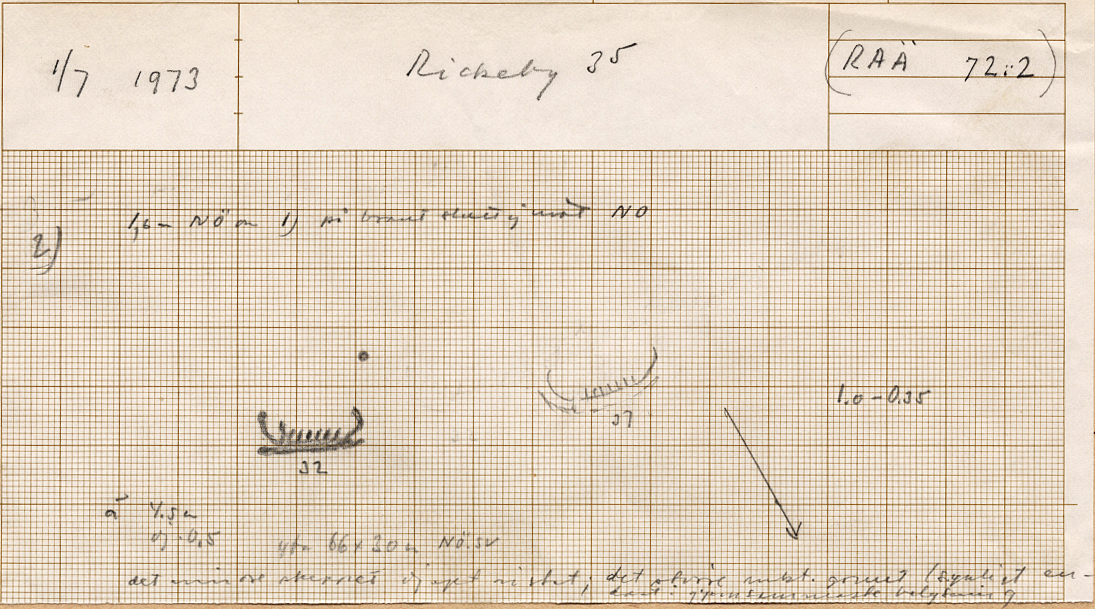 1/7 1973
Rickeby 35
(RAÄ 72:2)
2)
1,6 m NÖ om 1) på brant sluttning mot NO
1.0 - 0.35
37
32
å 4.5 m
dj. 0,5
yta 66 x 30 m NÖ.SV
det mindre skeppet djupt ristat; det större mkt. grunt (synligt en-